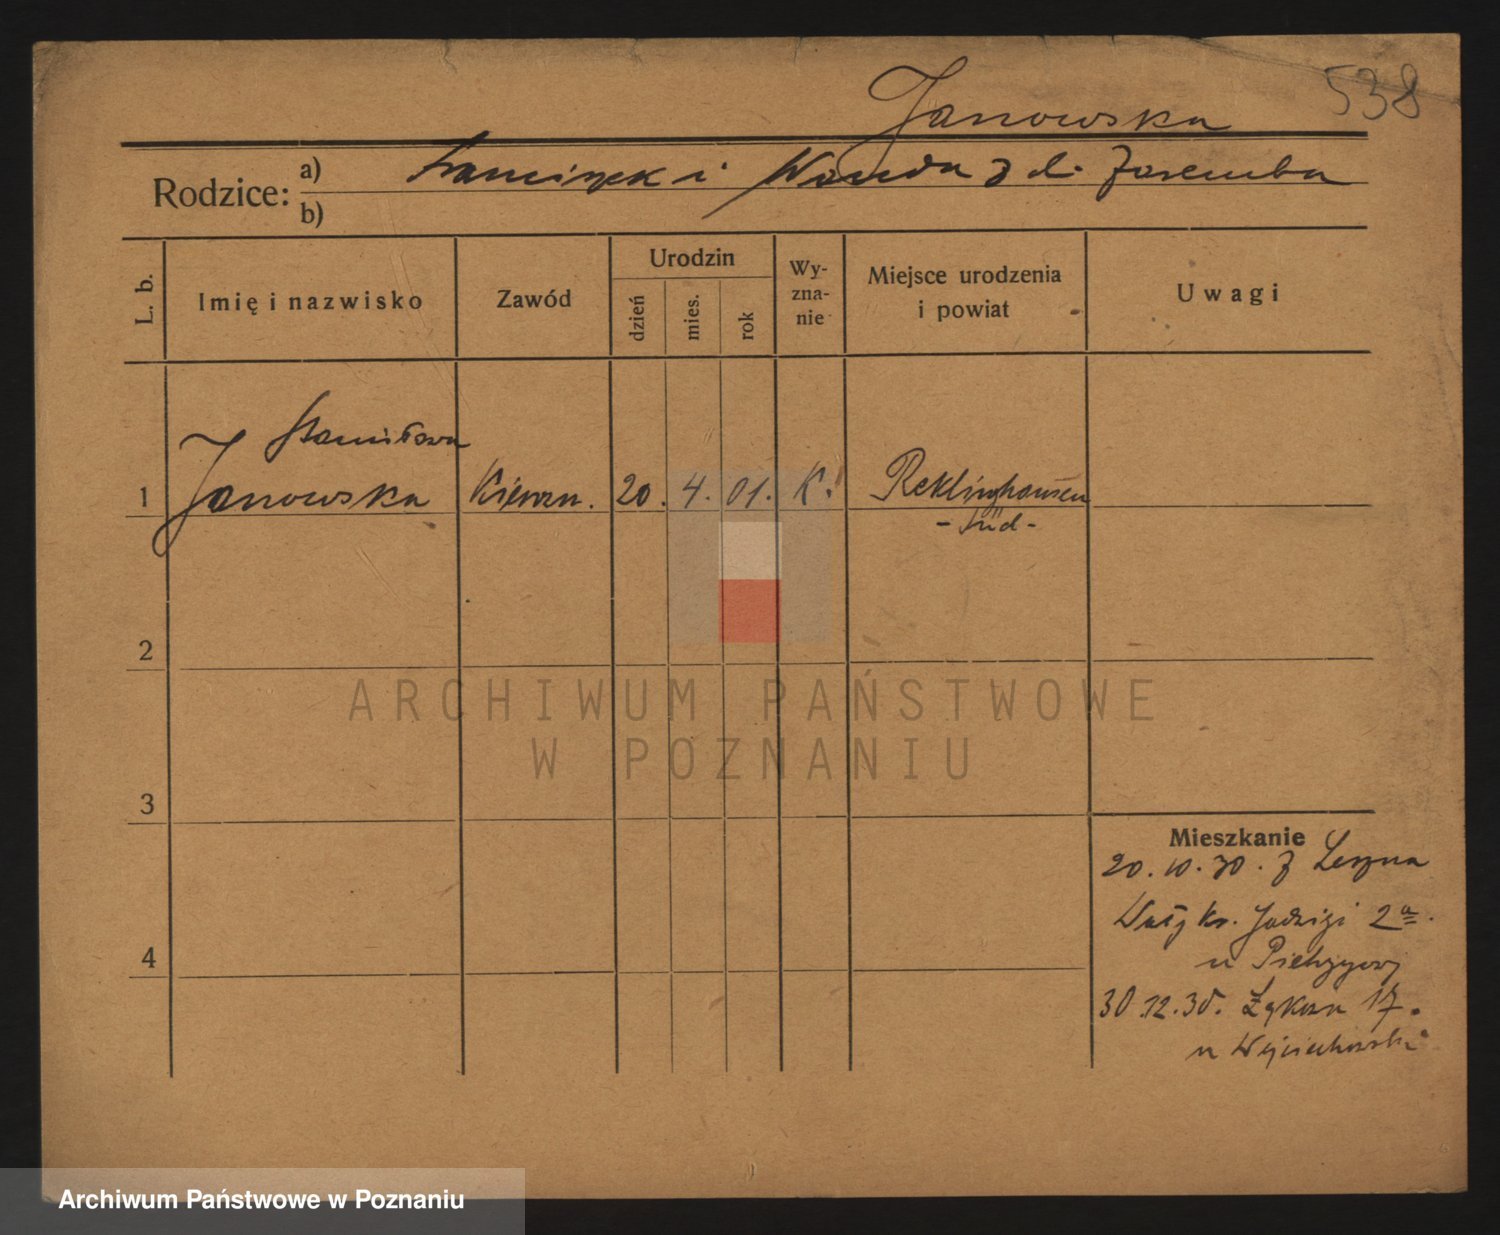 538
Janowska
Rodzice: a) Franciszek i Wanda z d. Zaremba
b)
L. b.
Imię i nazwisko
Zawód
Urodzin
dzień
mies.
rok
Wy-
zna-
nie
Miejsce urodzenia
i powiat
Uwagi
Stanisława
1 Janowska 20. 4. 01. K. Reklinghausen
-Süd-
2
3
4
Mieszkanie
20.10.30. z Leszna
Wały Kr. Jadwigi 2a.
u
30.12.30. Łąkowa 17.
u Wojciechowski
ARCHIWUM PAŃSTWOWE
W POZNANIU
Archiwum Państwowe w Poznaniu